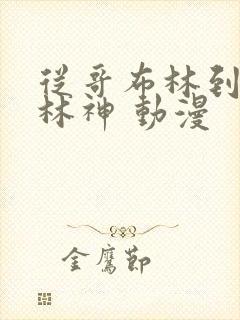 從哥布林到
林神 動漫
金鷹節